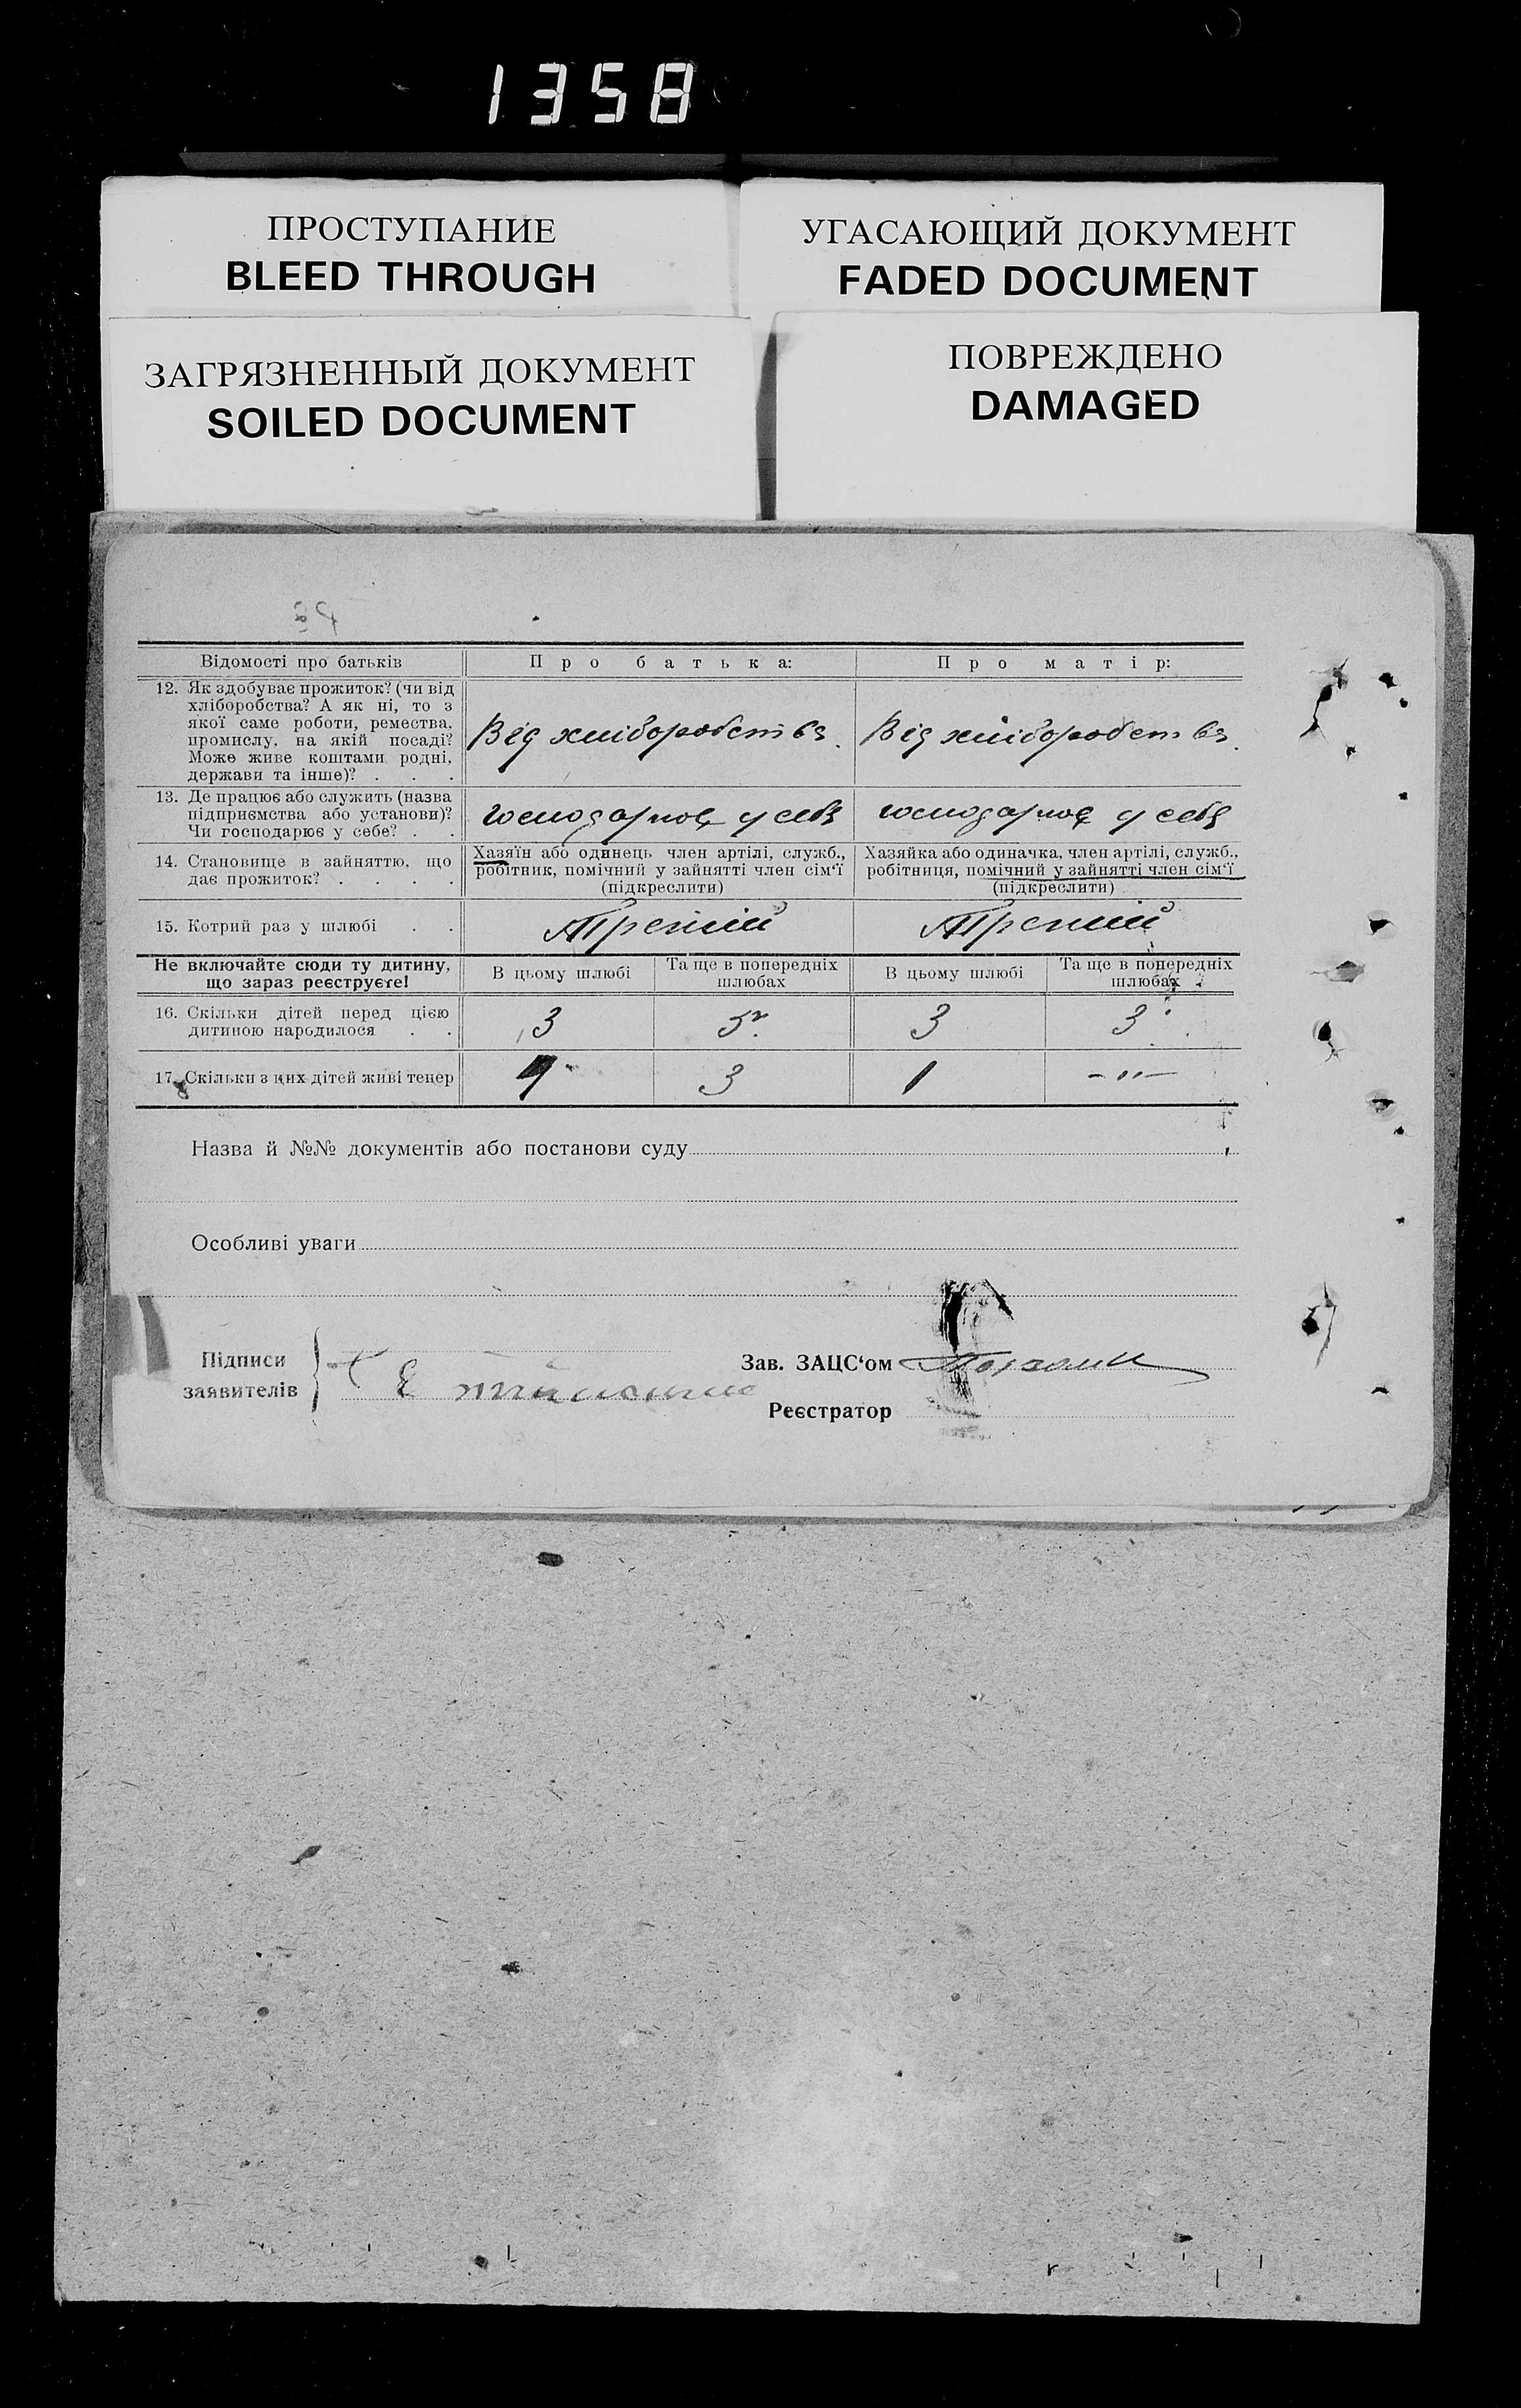 1358
ПРОСТУПАНИЕ
BLEED THROUGH
УГАСАЮЩИЙ ДОКУМЕНТ
FADED DOCUMENT
ЗАГРЯЗНЕННЫЙ ДОКУМЕНТ
SOILED DOCUMENT
ПОВРЕЖДЕНО
DAMAGED
Відомості про батьків
Про батька:
Про матір:
12. Як здобуває прожиток? (чи від
хліборобства? А як ні, то з
якої саме роботи, ремества,
промислу, на якій посаді?
Може живе коштами родні,
держави та інше)? . . .
Від хліборобства.
Від хліборобства.
13. Де працює або служить (назва
підприємства або установи)?
Чи господарює у себе? . .
господарює у себе
господарює у себе
14. Становище в зайняттю, що
дає прожиток? . . . .
Хазяїн або одинець член артілі, служб.,
робітник, помічний у зайнятті член сім‘ї
(підкреслити)
Хазяйка або одиначка, член артілі, служб.,
робітниця, помічний у зайнятті член сім‘ї
(підкреслити)
15. Котрий раз у шлюбі . .
Третій
Третій
Не включайте сюди ту дитину,
що зараз реєструєте!
В цьому шлюбі
Та ще в попередніх
шлюбах
В цьому шлюбі
Та ще в попередніх
шлюбах
16. Скільки дітей перед цією
дитиною народилося . .
3
5
3
3
17. Скільки з цих дітей живі тепер
3
1
— " —
Назва й №№ документів або постанови суду
Особливі уваги
Підписи
заявителів
Зав. ЗАЦС‘ом
Реєстратор